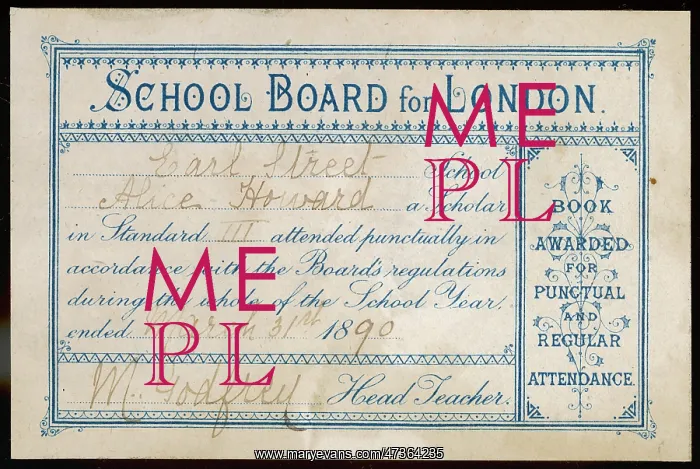 SCHOOL BOARD for LONDON.
Earl Street School
Alice Howard a Scholar
in Standard III attended punctually in
accordance with the Board's regulations
during the whole of the School Year,
ended March 31st 1890
M. Godfrey Head Teacher.
BOOK
AWARDED
FOR
PUNCTUAL
AND
REGULAR
ATTENDANCE.
ME
PL
ME
PL
www.maryevans.com/47364235